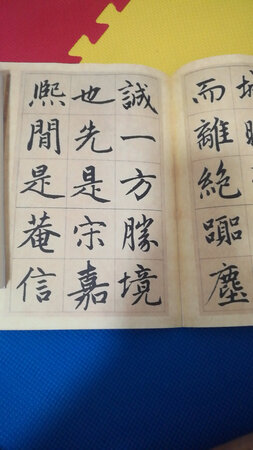 而離絕塵
誠一方勝境
也先是宋嘉
熙閒是菴信